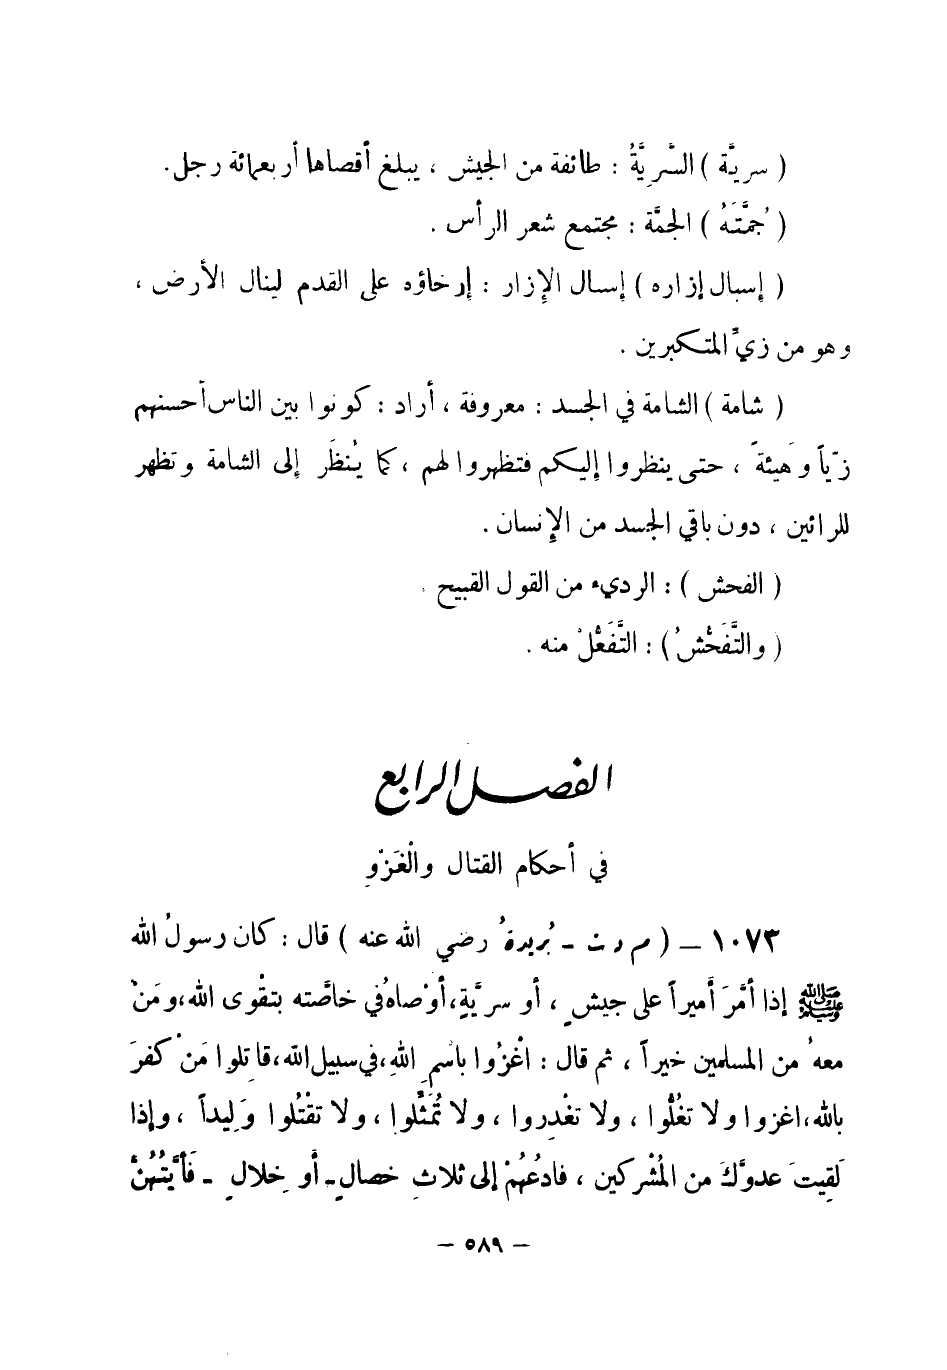 ( سريَّة ) السَّريَّةُ : طائفة من الجيش ، يبلغ أقصاها أربعمائة رجل.
( جُمَّتَهُ ) الجمَّة : مجتمع شعر الرأس .
( إسبال إزاره ) إسبال الإزار : إرخاؤه على القدم لينال الأرض ،
وهو من زيِّ المتكبرين .
( شامة ) الشامة في الجسد : معروفة ، أراد : كونوا بين الناس أحسنهم
زيّاً وهَيئةً ، حتى ينظروا إليكم فتظهروا لهم ، كما يُنظَر إلى الشامة وتظهر
للرائين ، دون باقي الجسد من الإنسان .
( الفحش ) : الرديء من القول القبيح .
( والتَّفَحُّشُ ) : التَّفَعُّلُ منه .
الفصل الرابع
في أحكام القتال والْغَزْوِ
١٠٧٣ – ( م د ت - بُريدةُ رضي الله عنه ) قال : كان رسولُ الله
ﷺ إذا أمَّرَ أَميراً على جيشٍ ، أو سريَّةٍ ، أوْصاهُ في خاصَّته بتقْوى الله ، ومَنْ
معهُ من المسلمين خيراً ، ثم قال : اغْزُوا باسْمِ اللهِ ، في سبيل الله ، قاتِلوا مَنْ كفرَ
بالله ، اغزوا ولا تغُلُّوا ، ولا تغْدِروا ، ولا تُمَثِّلوا ، ولا تقْتُلوا وَلِيداً ، وإذا
لَقِيتَ عدوَّكَ من المُشْركين ، فادعُهُمْ إلى ثلاثِ خصالٍ - أو خِلالٍ - فَأَيَّتُهُنَّ
– ٥٨٩ –